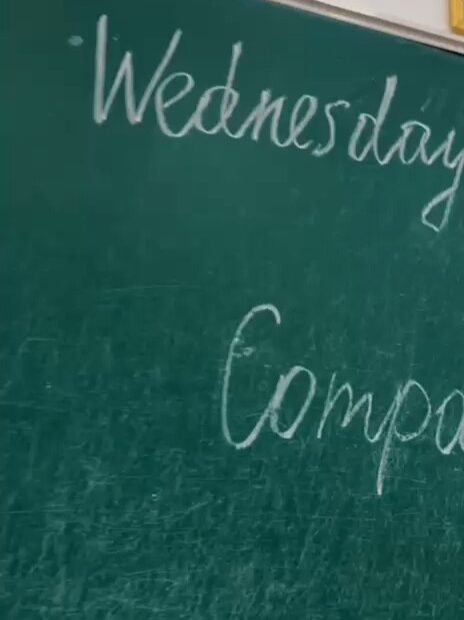 Wednesday
Compa